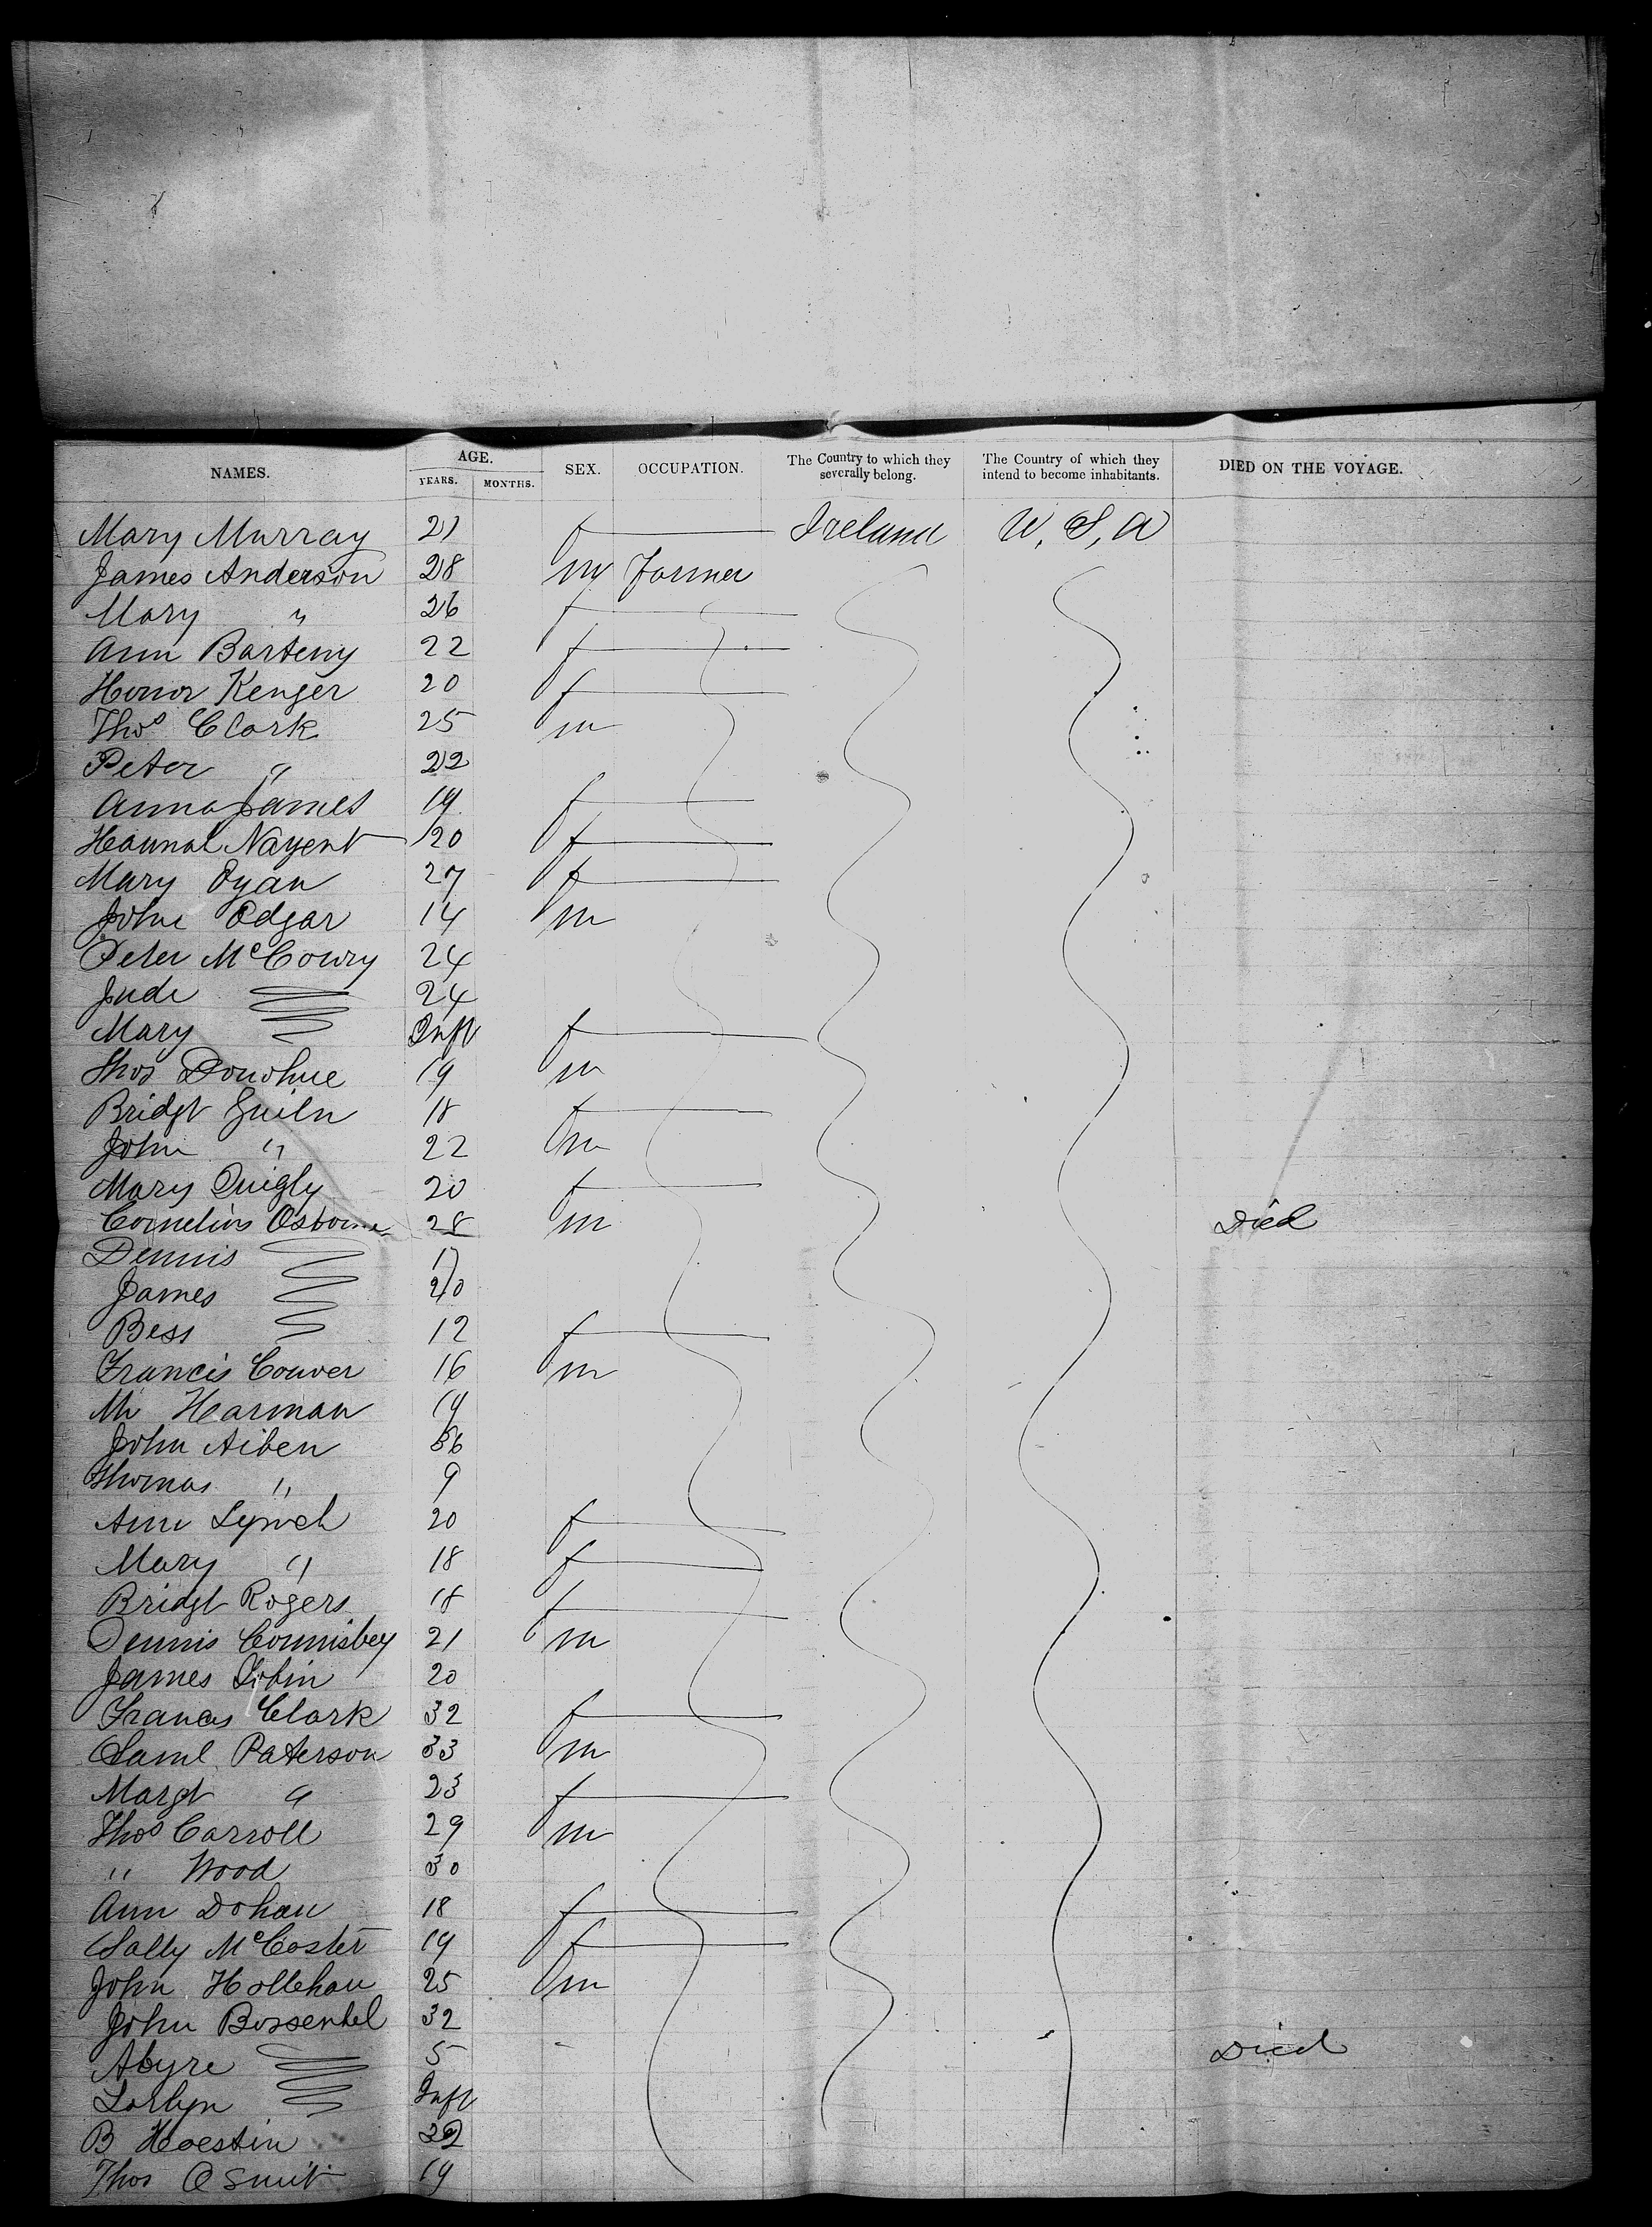 NAMES. AGE. SEX. OCCUPATION. The Country to which they severally belong. The Country of which they intend to become inhabitants. DIED ON THE VOYAGE.
YEARS. MONTHS.
Mary Murray 21 f Ireland U, S, A
James Anderson 28 m Farmer
Mary " 26 f
Ann Barteny 22 f
Honor Kenger 20 f
Thos Clark 25 m
Peter " 22
Anna James 19 f
Hannal Nayent 20 f
Mary Oyan 27 f
John Edgar 14 m
Peter McCowry 24
Jude 24
Mary Inft f
Thos Donohue 19 m
Bridgt Guiln 18 f
John " 22 m
Mary Quigly 20 f
Cornelius Osborne 28 m Died
Dennis 17
James 20
Bess 12 f
Francis Conver 16 m
M Harman 19
John Aiben 36
Thomas " 9
Ann Lynch 20 f
Mary " 18 f
Bridgt Rogers 18 f
Dennis Connisbey 21 m
James Tobin 20
Frances Clark 32 f
Saml Paterson 33 m
Margt " 23 f
Thos Carroll 29 m
" Wood 30
Ann Dohan 18 f
Sally McCoster 19 f
John Hollehan 25 m
John Bossenhel 32
Abyre 5 Died
Inft
B Hoestin 32
Thos Osmit 19